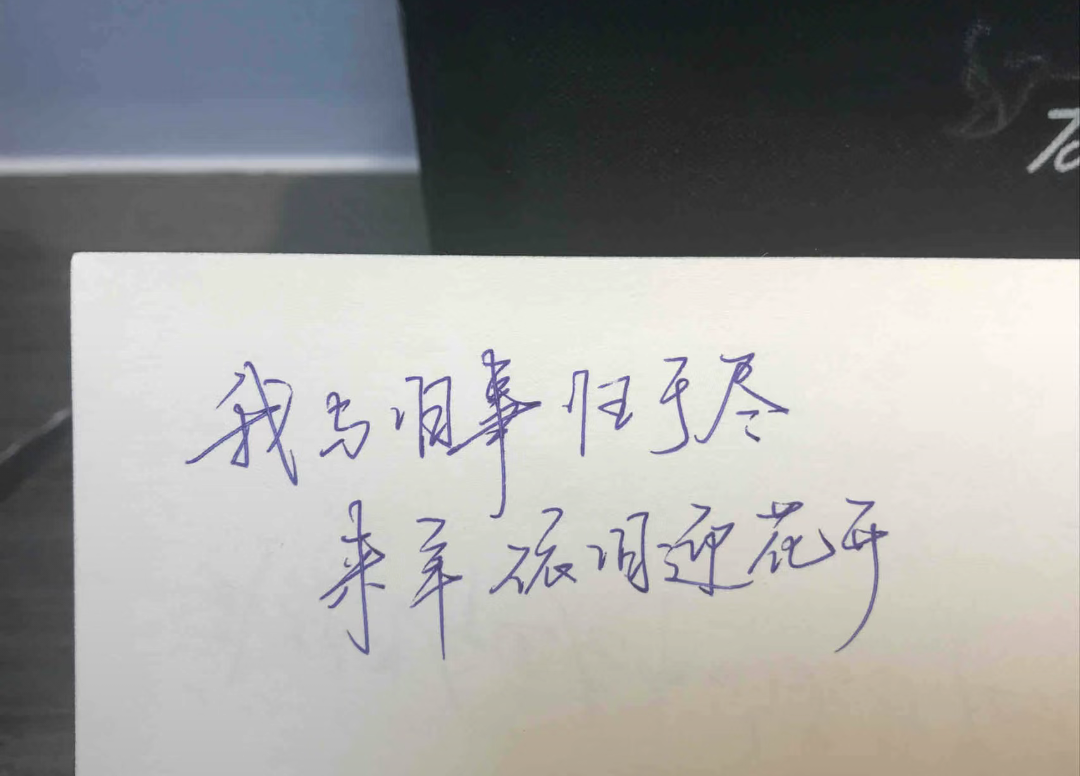 我与旧事归于尽
来年依旧迎花开